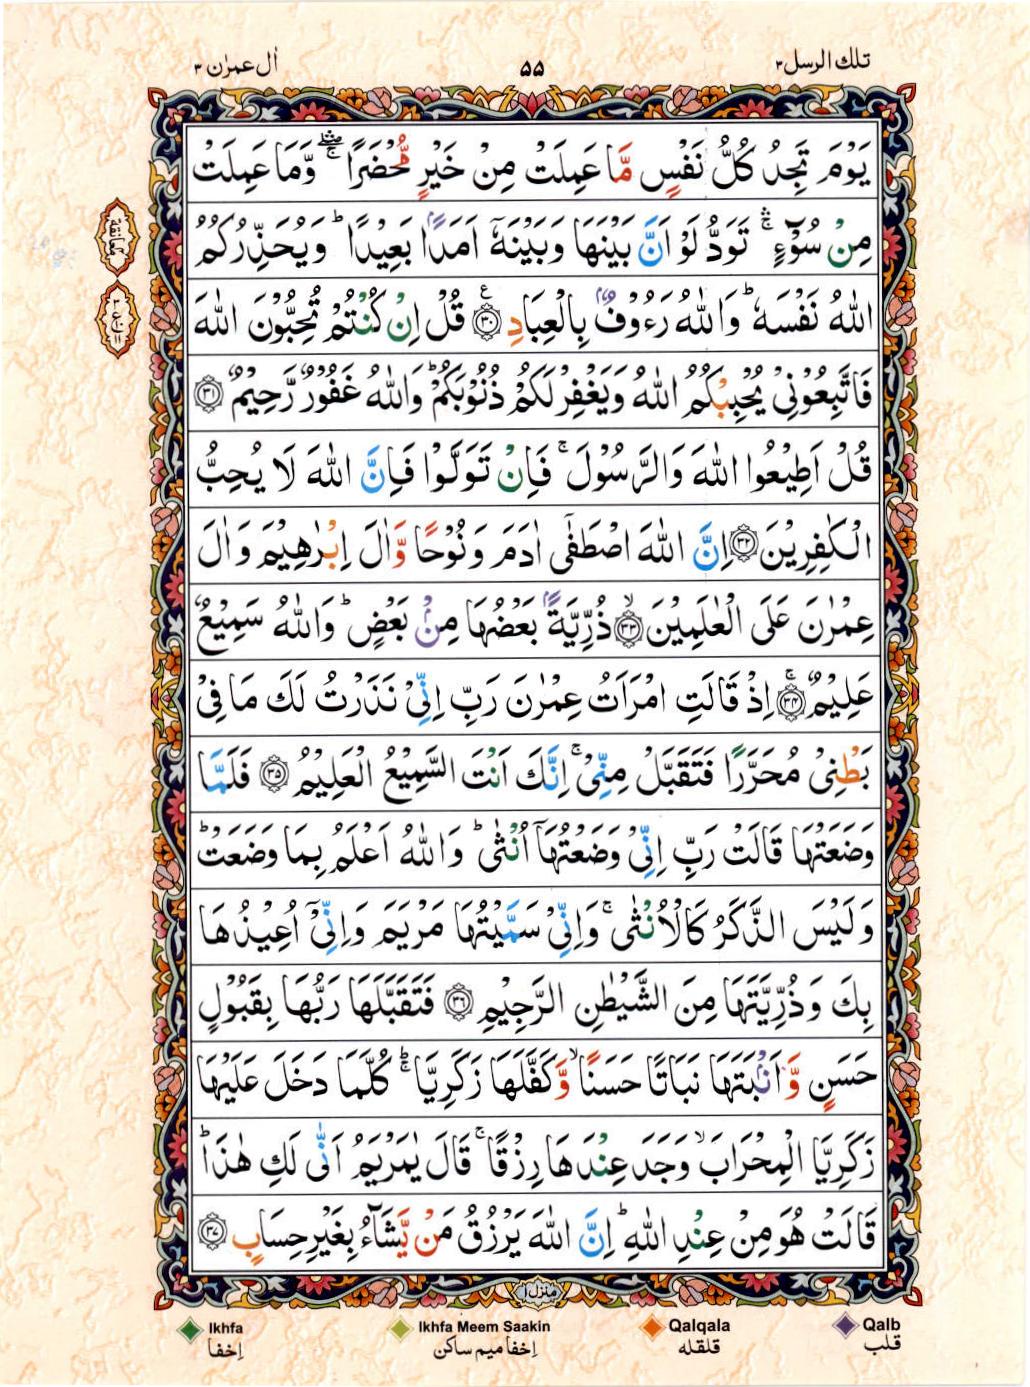 تلك الرسل ۳
۵۵
اٰل عمرٰن ۳
يَوْمَ تَجِدُ كُلُّ نَفْسٍ مَّا عَمِلَتْ مِنْ خَيْرٍ مُّحْضَرًا ۛۖۚ وَّمَا عَمِلَتْ
مِنْ سُوْٓءٍ ۛۚ تَوَدُّ لَوْ اَنَّ بَيْنَهَا وَبَيْنَهٗٓ اَمَدًۢا بَعِيْدًا ؕ وَيُحَذِّرُكُمُ
اللّٰهُ نَفْسَهٗ ؕ وَاللّٰهُ رَءُوْفٌۢ بِالْعِبَادِ ۝۳۰ع قُلْ اِنْ كُنْتُمْ تُحِبُّوْنَ اللّٰهَ
فَاتَّبِعُوْنِيْ يُحْبِبْكُمُ اللّٰهُ وَيَغْفِرْ لَكُمْ ذُنُوْبَكُمْ ؕ وَاللّٰهُ غَفُوْرٌ رَّحِيْمٌ ۝۳۱
قُلْ اَطِيْعُوا اللّٰهَ وَالرَّسُوْلَ ۚ فَاِنْ تَوَلَّوْا فَاِنَّ اللّٰهَ لَا يُحِبُّ
الْكٰفِرِيْنَ ۝۳۲ اِنَّ اللّٰهَ اصْطَفٰٓى اٰدَمَ وَنُوْحًا وَّاٰلَ اِبْرٰهِيْمَ وَاٰلَ
عِمْرٰنَ عَلَى الْعٰلَمِيْنَ ۝۳۳ۙ ذُرِّيَّةًۢ بَعْضُهَا مِنْۢ بَعْضٍ ؕ وَاللّٰهُ سَمِيْعٌ
عَلِيْمٌ ۝۳۴ۚ اِذْ قَالَتِ امْرَاَتُ عِمْرٰنَ رَبِّ اِنِّيْ نَذَرْتُ لَكَ مَا فِيْ
بَطْنِيْ مُحَرَّرًا فَتَقَبَّلْ مِنِّيْ ۚ اِنَّكَ اَنْتَ السَّمِيْعُ الْعَلِيْمُ ۝۳۵ فَلَمَّا
وَضَعَتْهَا قَالَتْ رَبِّ اِنِّيْ وَضَعْتُهَآ اُنْثٰى ؕ وَاللّٰهُ اَعْلَمُ بِمَا وَضَعَتْ ؕ
وَلَيْسَ الذَّكَرُ كَالْاُنْثٰى ۚ وَاِنِّيْ سَمَّيْتُهَا مَرْيَمَ وَاِنِّيْٓ اُعِيْذُهَا
بِكَ وَذُرِّيَّتَهَا مِنَ الشَّيْطٰنِ الرَّجِيْمِ ۝۳۶ فَتَقَبَّلَهَا رَبُّهَا بِقَبُوْلٍ
حَسَنٍ وَّاَنْۢبَتَهَا نَبَاتًا حَسَنًا ۙ وَّكَفَّلَهَا زَكَرِيَّا ؕۚ كُلَّمَا دَخَلَ عَلَيْهَا
زَكَرِيَّا الْمِحْرَابَ ۙ وَجَدَ عِنْدَهَا رِزْقًا ۚ قَالَ يٰمَرْيَمُ اَنّٰى لَكِ هٰذَا ؕ
قَالَتْ هُوَ مِنْ عِنْدِ اللّٰهِ ؕ اِنَّ اللّٰهَ يَرْزُقُ مَنْ يَّشَآءُ بِغَيْرِ حِسَابٍ ۝۳۷
منزل ۱
Ikhfa
اِخفا
Ikhfa Meem Saakin
اِخفا ميم ساكن
Qalqala
قلقله
Qalb
قلب